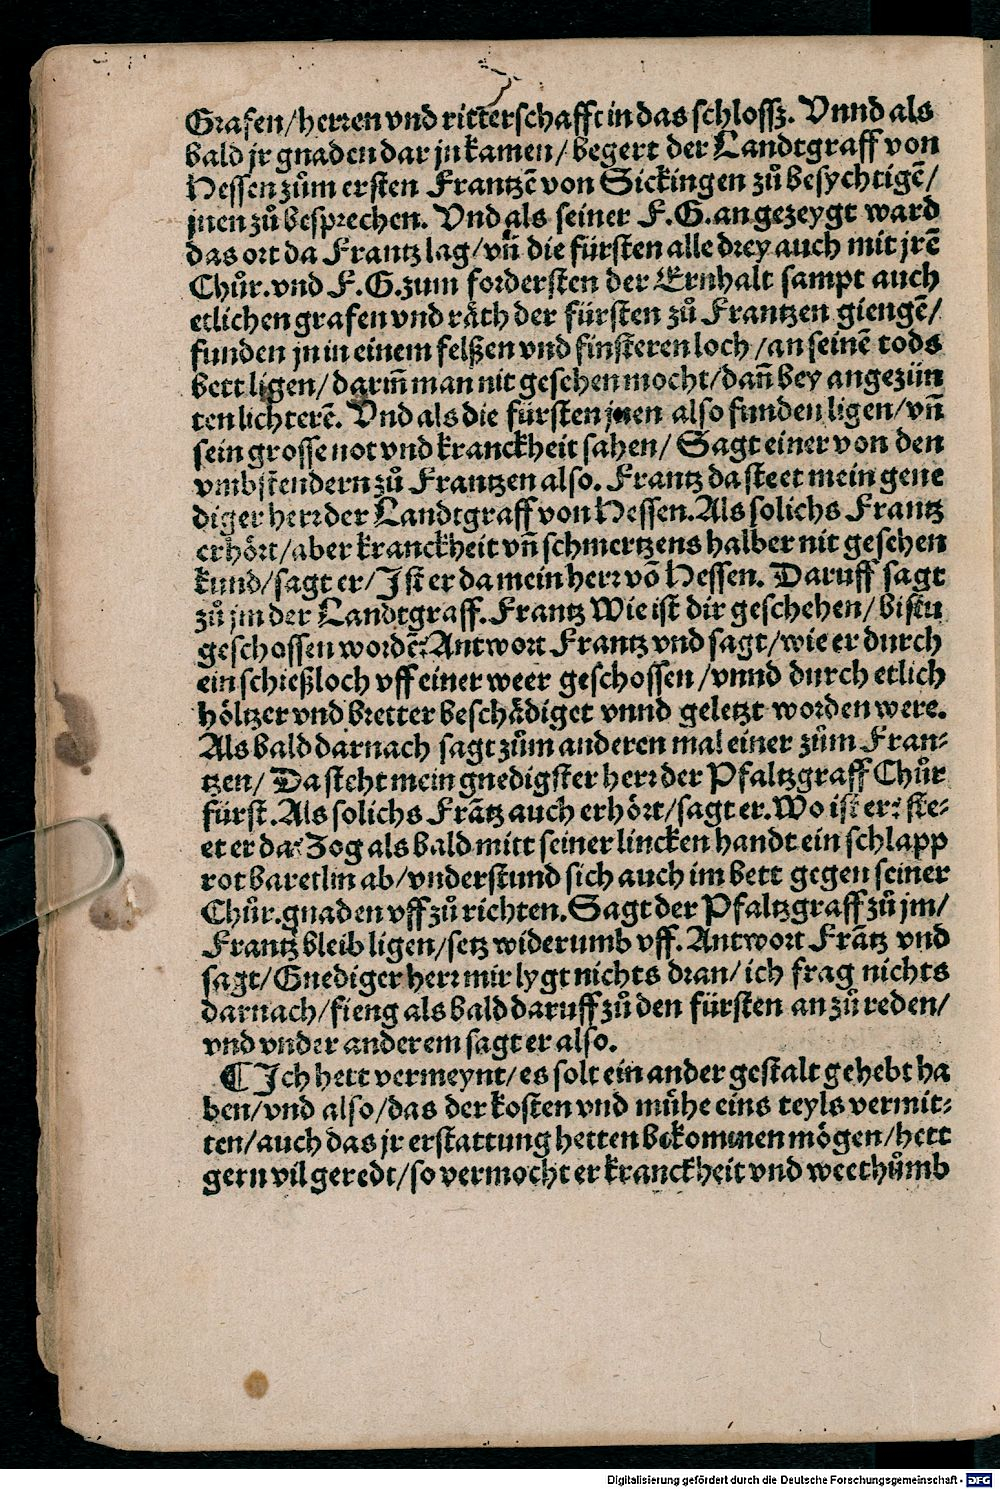 Grafen/herren vnd ritterschafft in das schlossz. Vnnd als
bald jr gnaden dar jn kamen/ begert der Landtgraff von
Hessen zům ersten Frantzē von Sickingen zů besychtigē/
jnen zů besprechen. Vnd als seiner F.G. angezeygt ward
das ort da Frantz lag/vn̄ die fürsten alle drey auch mit jrē
Chůr.vnd F.G.zum fordersten der Ernhalt sampt auch
etlichen grafen vnd räth der fürsten zů Frantzen giengē/
funden jn in einem felßen vnd finsteren loch/an seinē tods
bett ligen/ darin̄ man nit gesehen mocht/dan̄ bey angezün
ten lichterē. Vnd als die fürsten jnen also funden ligen/vn̄
sein grosse not vnd kranckheit sahen/ Sagt einer von den
vmbstendern zů Frantzen also. Frantz da steet mein gene
diger herr der Landtgraff von Hessen.Als solichs Frantz
erhört/aber kranckheit vn̄ schmertzens halber nit gesehen
kund/sagt er/Ist er da mein herr vō Hessen. Daruff sagt
zů jm der Landtgraff.Frantz Wie ist dir geschehen/bistu
geschossen wordē?Antwort Frantz vnd sagt/wie er durch
ein schießloch vff einer weer geschossen/vnnd durch etlich
höltzer vnd bretter beschädiget vnnd geletzt worden were.
Als bald darnach sagt zům anderen mal einer zům Fran⸗
tzen/ Da steht mein gnedigster herr der Pfaltzgraff Chůr
fürst.Als solichs Frātz auch erhört/sagt er.Wo ist er? ste⸗
et er da?Zog als bald mitt seiner lincken handt ein schlapp
rot baretlin ab/vnderstund sich auch im bett gegen seiner
Chůr.gnaden vff zů richten.Sagt der Pfaltzgraff zů jm/
Frantz bleib ligen/setz widerumb vff. Antwort Frātz vnd
sagt/Gnediger herr mir lygt nichts dran/ich frag nichts
darnach/fieng als bald daruff zů den fürsten an zů reden/
vnd vnder anderem sagt er also.
¶ Ich hett vermeynt/es solt ein ander gestalt gehebt ha
ben/vnd also/das der kosten vnd mühe eins teyls vermit⸗
ten/auch das jr erstattung hetten bekommen mögen/hett
gern vil geredt/so vermocht er kranckheit vnd weethůmb
Digitalisierung gefördert durch die Deutsche Forschungsgemeinschaft - DFG